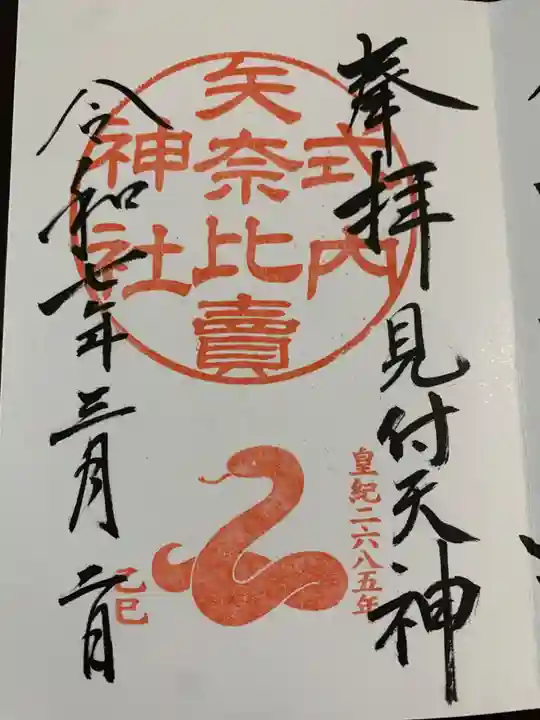 奉拝 見付天神
式内
矢奈比賣
神社
皇紀二六八五年
己巳
令和七年三月二日